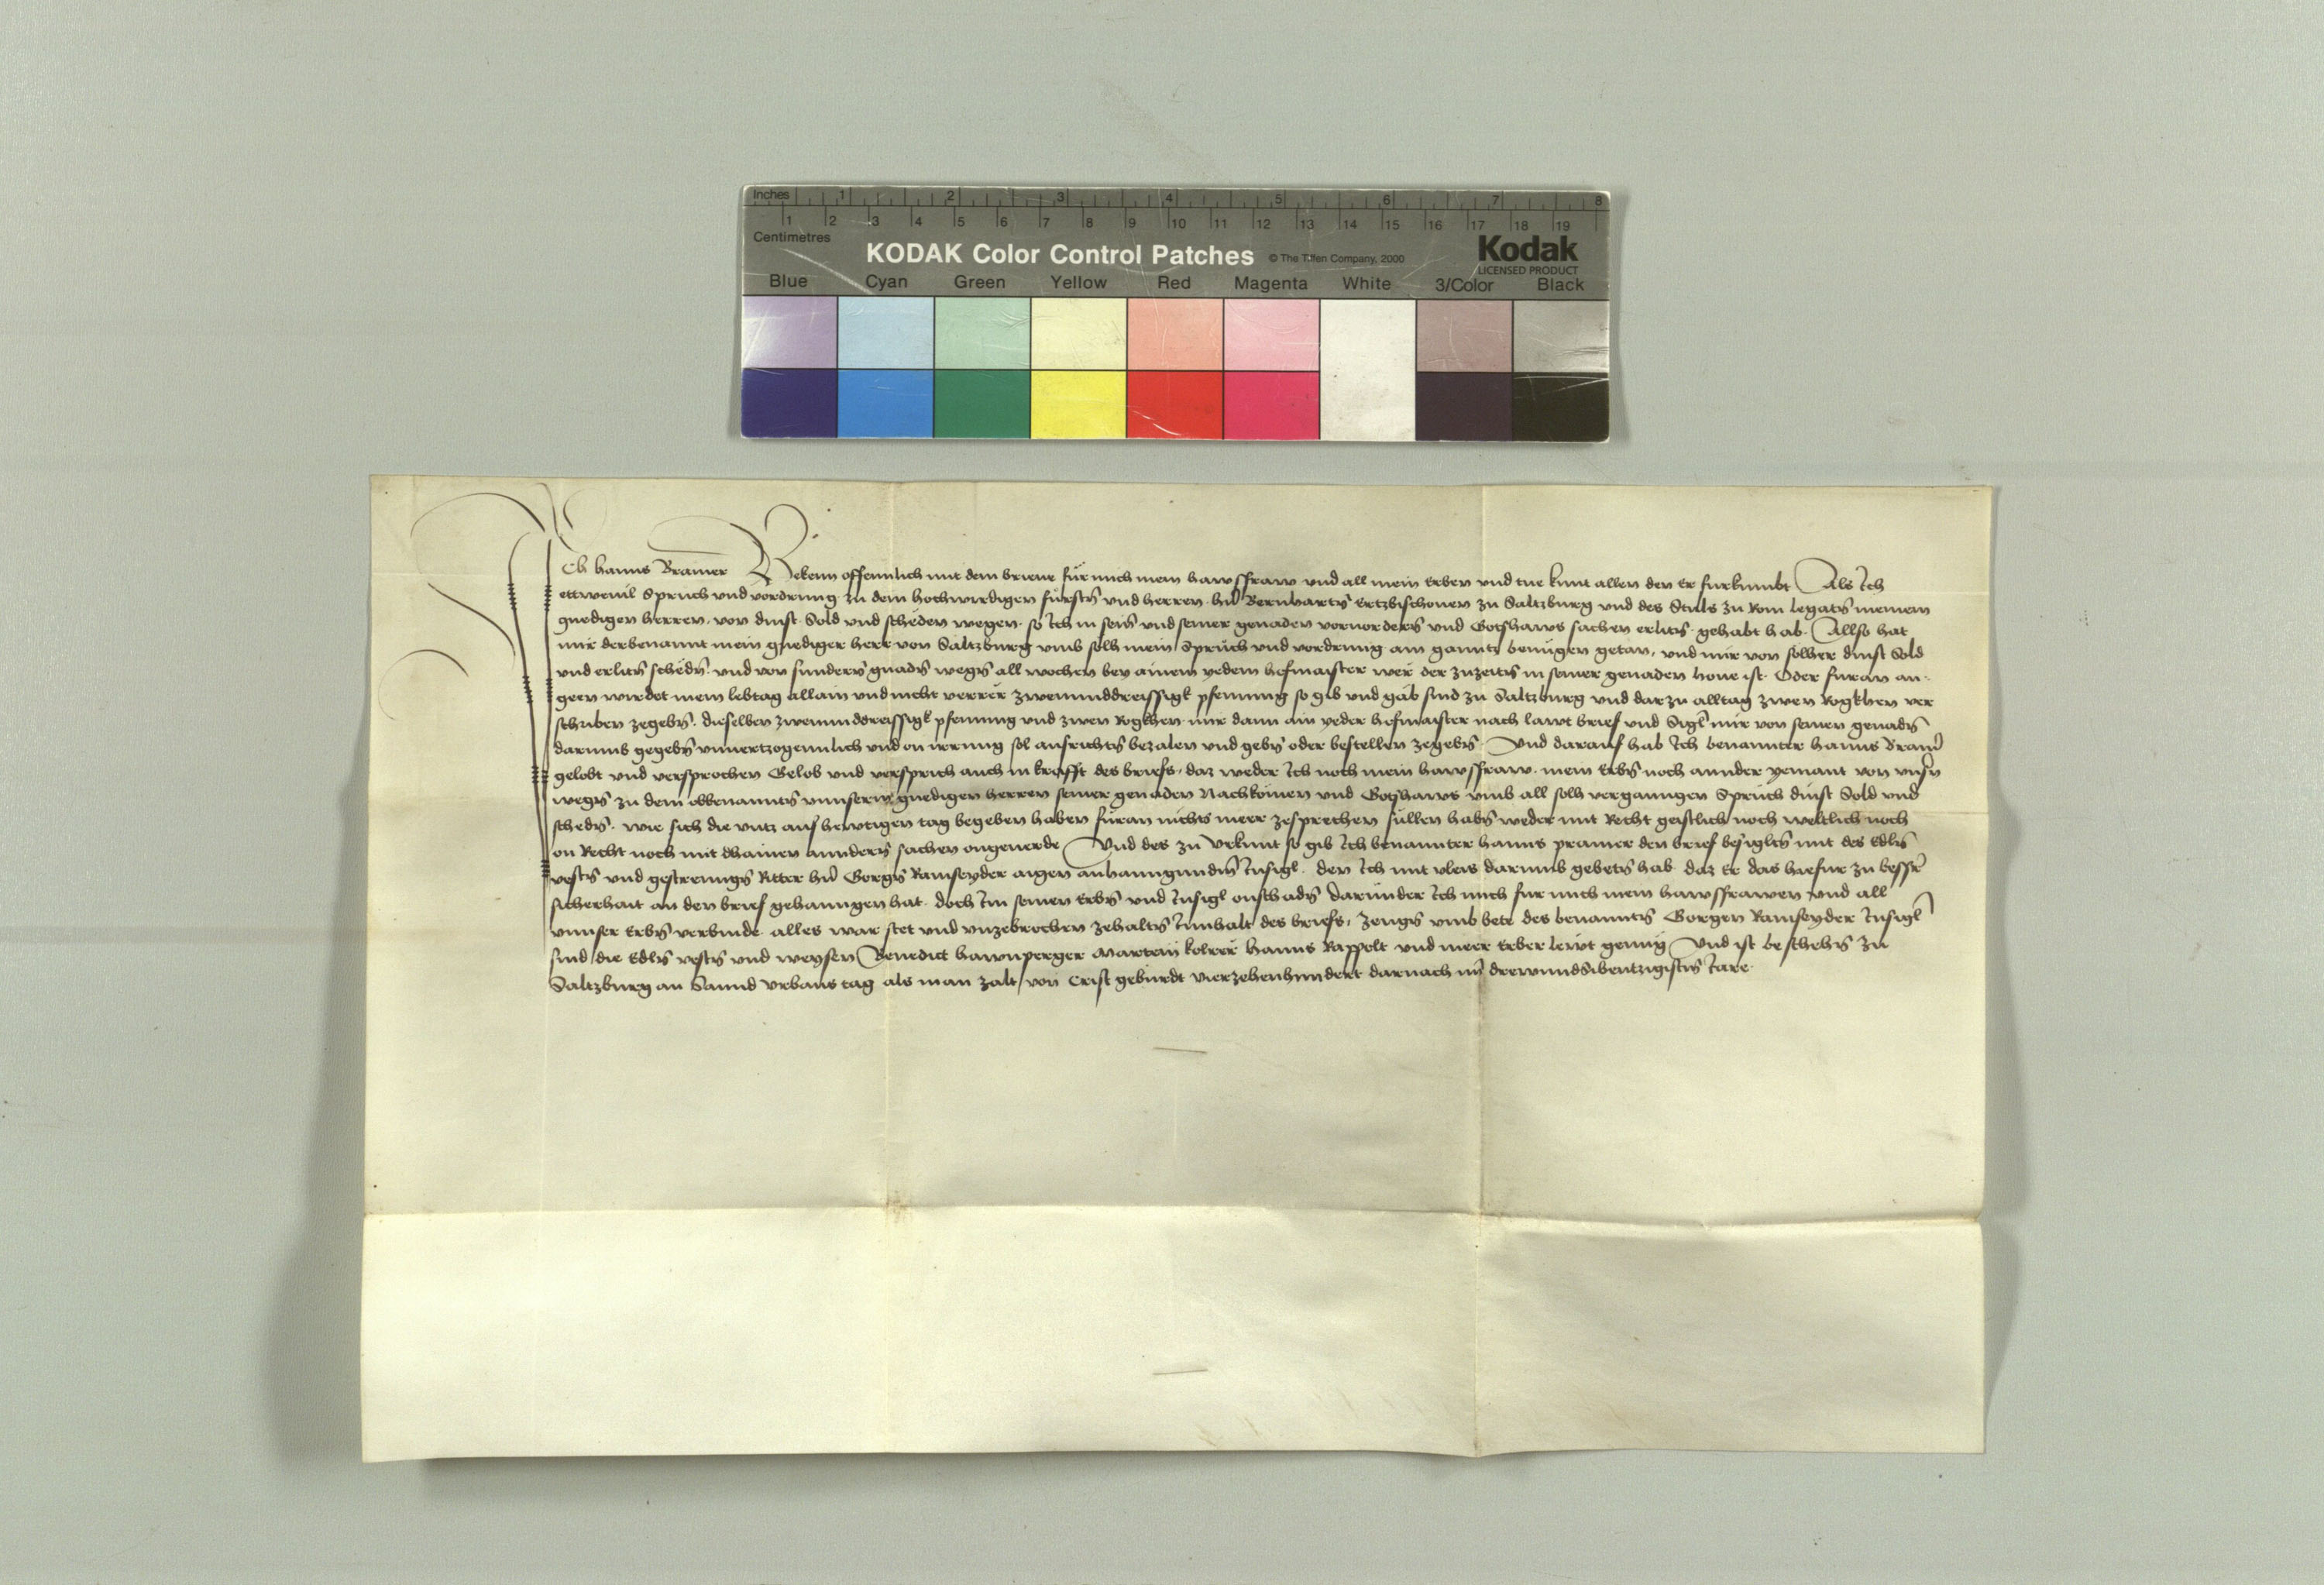 Inches 1 2 3 4 5 6 7 8
1 2 3 4 5 6 7 8 9 10 11 12 13 14 15 16 17 18 19
Centimetres
KODAK Color Control Patches © The Tiffen Company, 2000 Kodak
LICENSED PRODUCT
Blue Cyan Green Yellow Red Magenta White 3/Color Black
Ich Hanns Bramer Bekenn offennlich mit dem brieue für mich mein hawsfraw vnd all mein Erben vnd tue kunt allen den Er furkumbt Als Ich
ettweuil Spruch vnd vordrung zu dem hochwirdigen fürstn vnd herren hrn Bernhartn Ertzbischouen zu Saltzburg vnd des Stuls zu Rom legatn meinem
gnedigen herren, von dinst Sold vnd scheden wegen so Ich in sein vnd seiner genaden voruordern vnd Gotshaws sachen erlitn gehabt hab. Allso hat
mir derbenannt mein gnediger herr von Saltzburg vmb solh mein Sprüch vnd vordrung ain ganntz benügen getan, vnd mir von solher dinst Sold
vnd erlitn schedn vnd von sundern gnadn wegn all wochen bey ainem yedem hofmaister wer der zuzeitn in seiner genaden houe ist Oder furan an-
geen wirdet mein lebtag allain vnd nicht verrer zwenunddreissigk pfenning so gib vnd gäb sind zu Saltzburg vnd darzu alltag zwen Rogkhen ver
schriben zegebn, dieselben zwenunddreissigk pfenning vnd zwen Rogkhen mir dann ain yeder hofmaister nach lawt brief vnd Sigl mir von seinen genadn
darumb gegebn vnuertzogennlich vnd on irrung sol ausrichtn bezalen vnd gebn oder bestellen zegebn Vnd darauf hab Ich benannter Hanns Bramer
gelobt vnd versprochen Gelob vnd versprich auch in krafft des briefs, daz weder Ich noch mein hawsfraw mein Erbn noch annder yemant von vnsern
wegn zu dem obbenanntn vnnserm gnedigen herren seiner genaden Nachkomen vnd Gotshaws vmb all solh vergangen Sprüch dinst Sold vnd
schedn wie sich die vntz auf hewtigen tag begeben haben füran nichts meer zesprechen süllen habn weder mit Recht geistlich noch weltlich noch
on Recht noch mit dhainen anndern sachen ongeuerde Vnd des zu Vrkunt so gib Ich benannter Hanns pramer den brief besigltn mit des Edln
vestn vnd gestrenngn Ritter hrn Gorgn Ramseyder aigen anhanngundm Insigl. den Ich mit vleis darumb gebetn hab daz Er das hiefur zu besser
sicherhait an den brief gehanngen hat doch Im seinen Erbn vnd Insigl onschadn Darunder Ich mich fur mich mein hawsfrawen vnd all
vnnser Erbn verbinde alles war stet vnd vnzebrochen zehaltn Innhalt des briefs, Zeugn vmb bete des benanntn Gorgen Ramseyder Insigl
sind die Edln vestn vnd weysen Benedict hawnperger Martein kolrer Hanns Rappolt vnd meer Erber lewt genug Vnd ist beschehn zu
Saltzburg an Sannd Vrbans tag als man zalt von Crist geburdt vierzehenhundert darnach im drewundsibentzigistn Jare